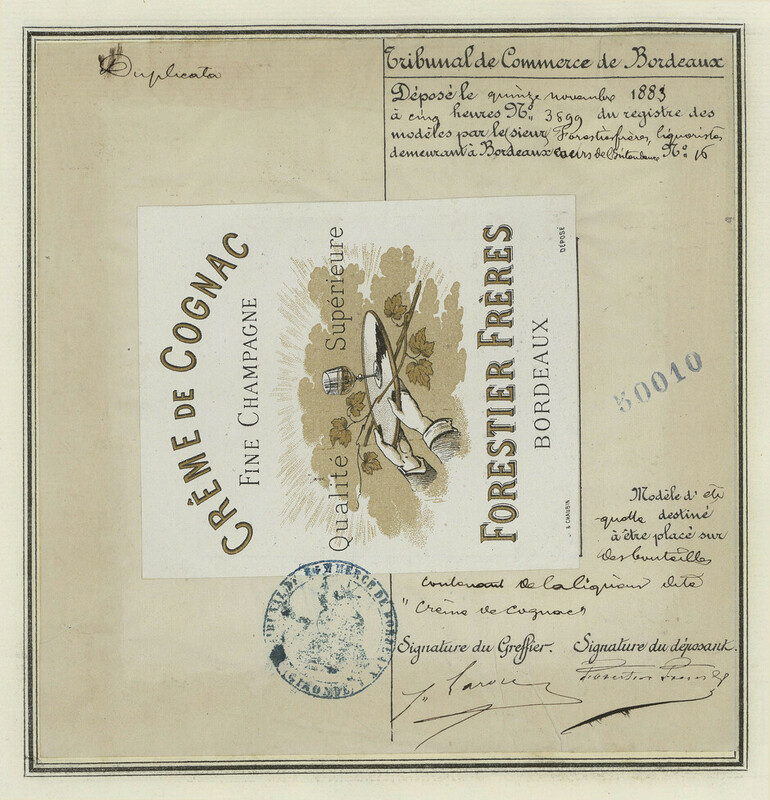 Duplicata
Tribunal de Commerce de Bordeaux
Déposé le quinze novembre 1883
à cinq heures No. 3899 du registre des
modèles par le sieur Forestier frères, liquoristes
demeurant à Bordeaux cours de No. 16
CRÈME DE COGNAC
FINE CHAMPAGNE
Qualité Supérieure
FORESTIER FRÈRES
BORDEAUX
DÉPOSÉ
CHAUBIN
50010
Modèle d'éti
quette destiné
à être placé sur
des bouteilles
contenant de la liqueur dite
"Crème de Cognac"
TRIBUNAL DE COMMERCE DE BORDEAUX
GIRONDE
Signature du Greffier. Signature du déposant.
Forestier Frères